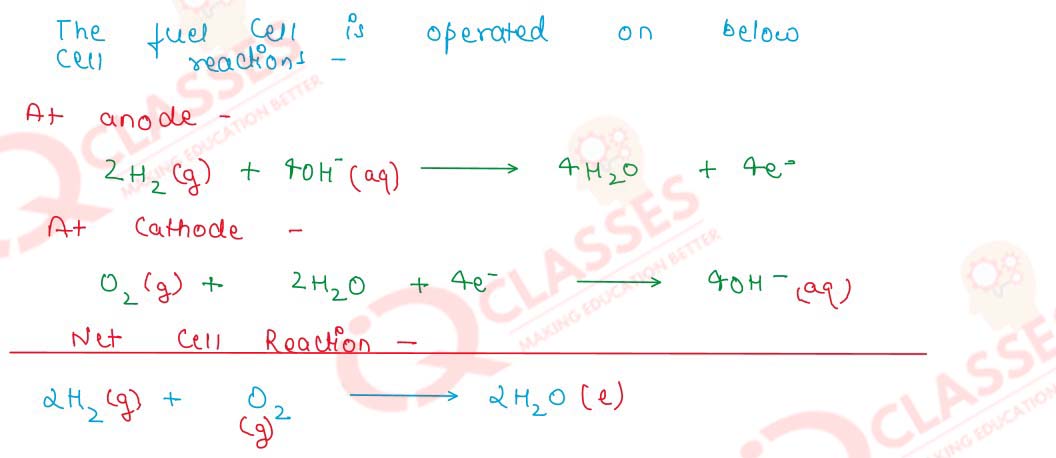 The fuel Cell is operated on below
Cell reactions -
At anode -
2H₂(g) + 4OH⁻(aq) ⟶ 4H₂O + 4e⁻
At Cathode -
O₂(g) + 2H₂O + 4e⁻ ⟶ 4OH⁻(aq)
Net Cell Reaction -
2H₂(g) + O₂(g) ⟶ 2H₂O(l)
CLASSES
MAKING EDUCATION BETTER
CLASSES
MAKING EDUCATION BETTER
CLASSES
MAKING EDUCATION